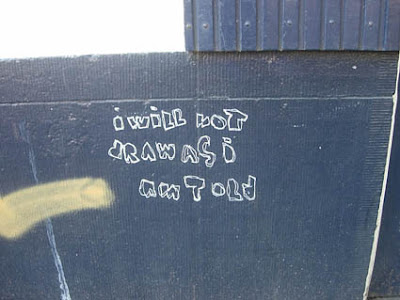 i will not
draw as i
am told